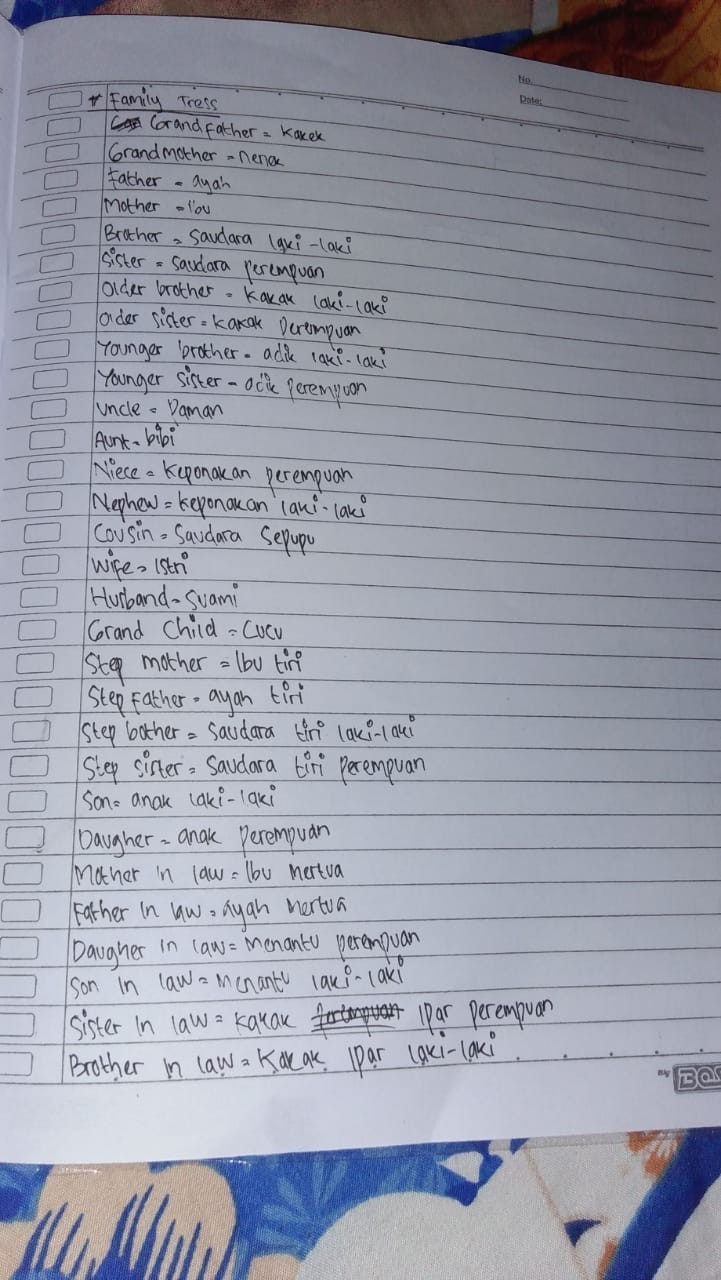 No.
Date:
* Family Tress
Grandfather = Kakek
Grandmother = nenek
Father = ayah
Mother = Ibu
Brother = Saudara laki-laki
Sister = Saudara perempuan
Older brother = Kakak laki-laki
Older sister = Kakak Perempuan
Younger brother = adik laki-laki
Younger sister = adik perempuan
Uncle = Paman
Aunt = bibi
Niece = Keponakan perempuan
Nephew = Keponakan laki-laki
Cousin = Saudara Sepupu
Wife = Istri
Husband = Suami
Grand Child = Cucu
Step mother = Ibu tiri
Step Father = ayah tiri
Step bother = Saudara tiri laki-laki
Step sister = Saudara tiri perempuan
Son = anak laki-laki
Daugher = anak Perempuan
Mother in law = Ibu Mertua
Father in law = Ayah Mertua
Daugher in law = Menantu perempuan
Son in law = Menantu laki-laki
Sister in law = Kakak Ipar perempuan
Brother in law = Kakak Ipar laki-laki